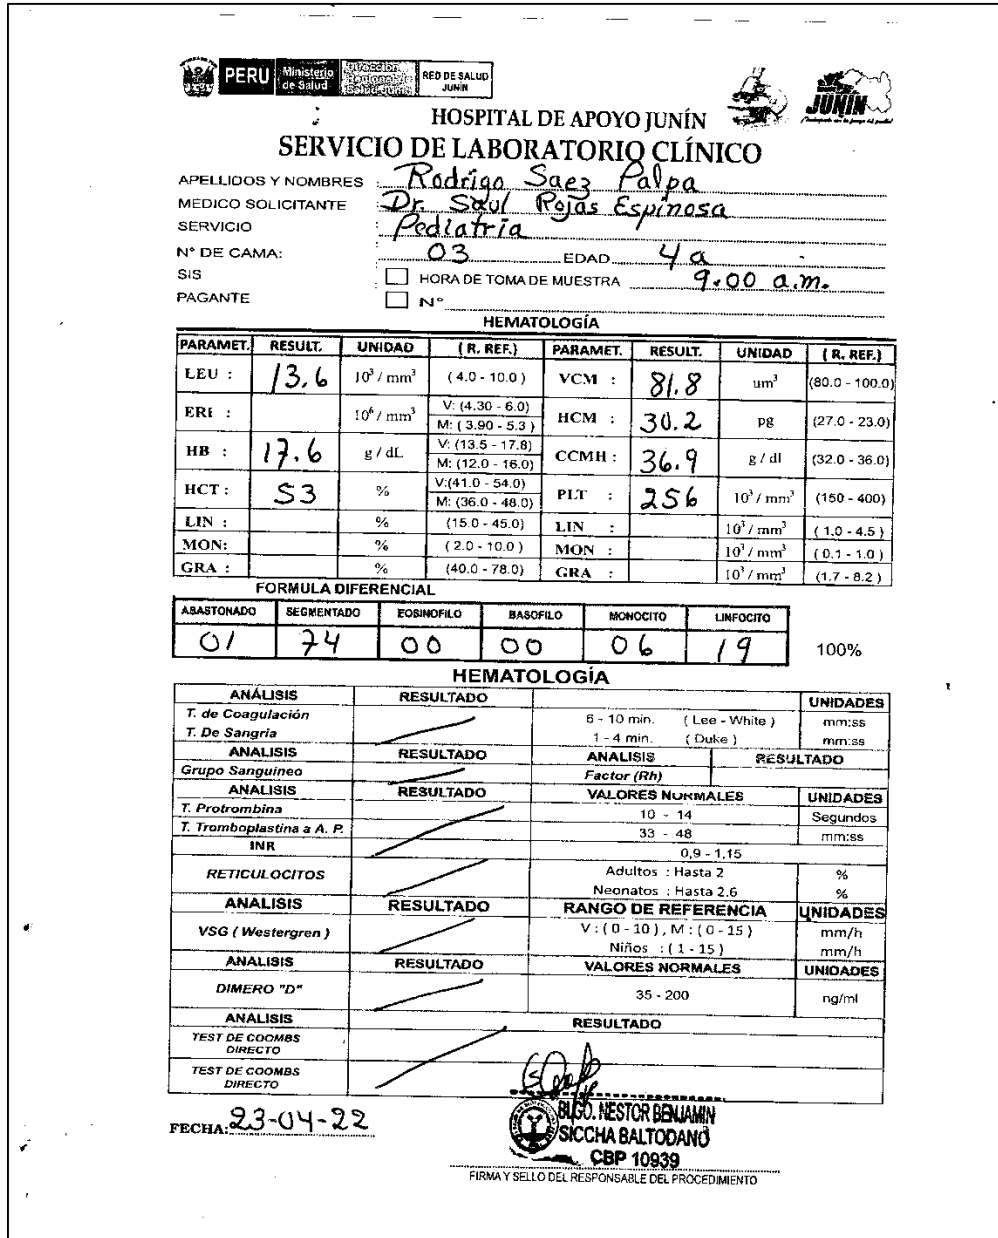 PERU Ministerio de Salud Dirección Regional de Salud Junín RED DE SALUD JUNIN
JUNÍN
HOSPITAL DE APOYO JUNÍN
SERVICIO DE LABORATORIO CLÍNICO
APELLIDOS Y NOMBRES : Rodrigo Saez Palpa
MEDICO SOLICITANTE Dr. Saul Rojas Espinosa
SERVICIO Pediatria
N° DE CAMA: 03 EDAD 4 a
SIS HORA DE TOMA DE MUESTRA 9.00 a.m.
PAGANTE N°
HEMATOLOGÍA
PARAMET. RESULT. UNIDAD ( R. REF.) PARAMET. RESULT. UNIDAD ( R. REF.)
LEU : 13.6 10³ / mm³ ( 4.0 - 10.0 ) VCM : 81.8 um³ (80.0 - 100.0)
ERI : 10⁶ / mm³ V: (4.30 - 6.0) M: ( 3.90 - 5.3 ) HCM : 30.2 pg (27.0 - 23.0)
HB : 17.6 g / dL V: (13.5 - 17.8) M: (12.0 - 16.0) CCMH : 36.9 g / dl (32.0 - 36.0)
HCT : 53 % V:(41.0 - 54.0) M: (36.0 - 48.0) PLT : 256 10³ / mm³ (150 - 400)
LIN : % (15.0 - 45.0) LIN : 10³ / mm³ ( 1.0 - 4.5 )
MON: % ( 2.0 - 10.0 ) MON : 10³ / mm³ ( 0.1 - 1.0 )
GRA : % (40.0 - 78.0) GRA : 10³ / mm³ (1.7 - 8.2 )
FORMULA DIFERENCIAL
ABASTONADO SEGMENTADO EOSINOFILO BASOFILO MONOCITO LINFOCITO
01 74 00 00 06 19 100%
HEMATOLOGÍA
ANÁLISIS RESULTADO UNIDADES
T. de Coagulación 6 - 10 min. ( Lee - White ) mm:ss
T. De Sangria 1 - 4 min. ( Duke ) mm:ss
ANALISIS RESULTADO ANALISIS RESULTADO
Grupo Sanguineo Factor (Rh)
ANALISIS RESULTADO VALORES NORMALES UNIDADES
T. Protrombina 10 - 14 Segundos
T. Tromboplastina a A. P. 33 - 48 mm:ss
INR 0,9 - 1,15
RETICULOCITOS Adultos : Hasta 2 %
Neonatos : Hasta 2.6 %
ANALISIS RESULTADO RANGO DE REFERENCIA UNIDADES
VSG ( Westergren ) V : ( 0 - 10 ) , M : ( 0 - 15 ) mm/h
Niños : ( 1 - 15 ) mm/h
ANALISIS RESULTADO VALORES NORMALES UNIDADES
DIMERO "D" 35 - 200 ng/ml
ANALISIS RESULTADO
TEST DE COOMBS DIRECTO
TEST DE COOMBS DIRECTO
FECHA: 23-04-22
BLGO. NESTOR BENJAMIN
SICCHA BALTODANO
CBP 10939
FIRMA Y SELLO DEL RESPONSABLE DEL PROCEDIMIENTO